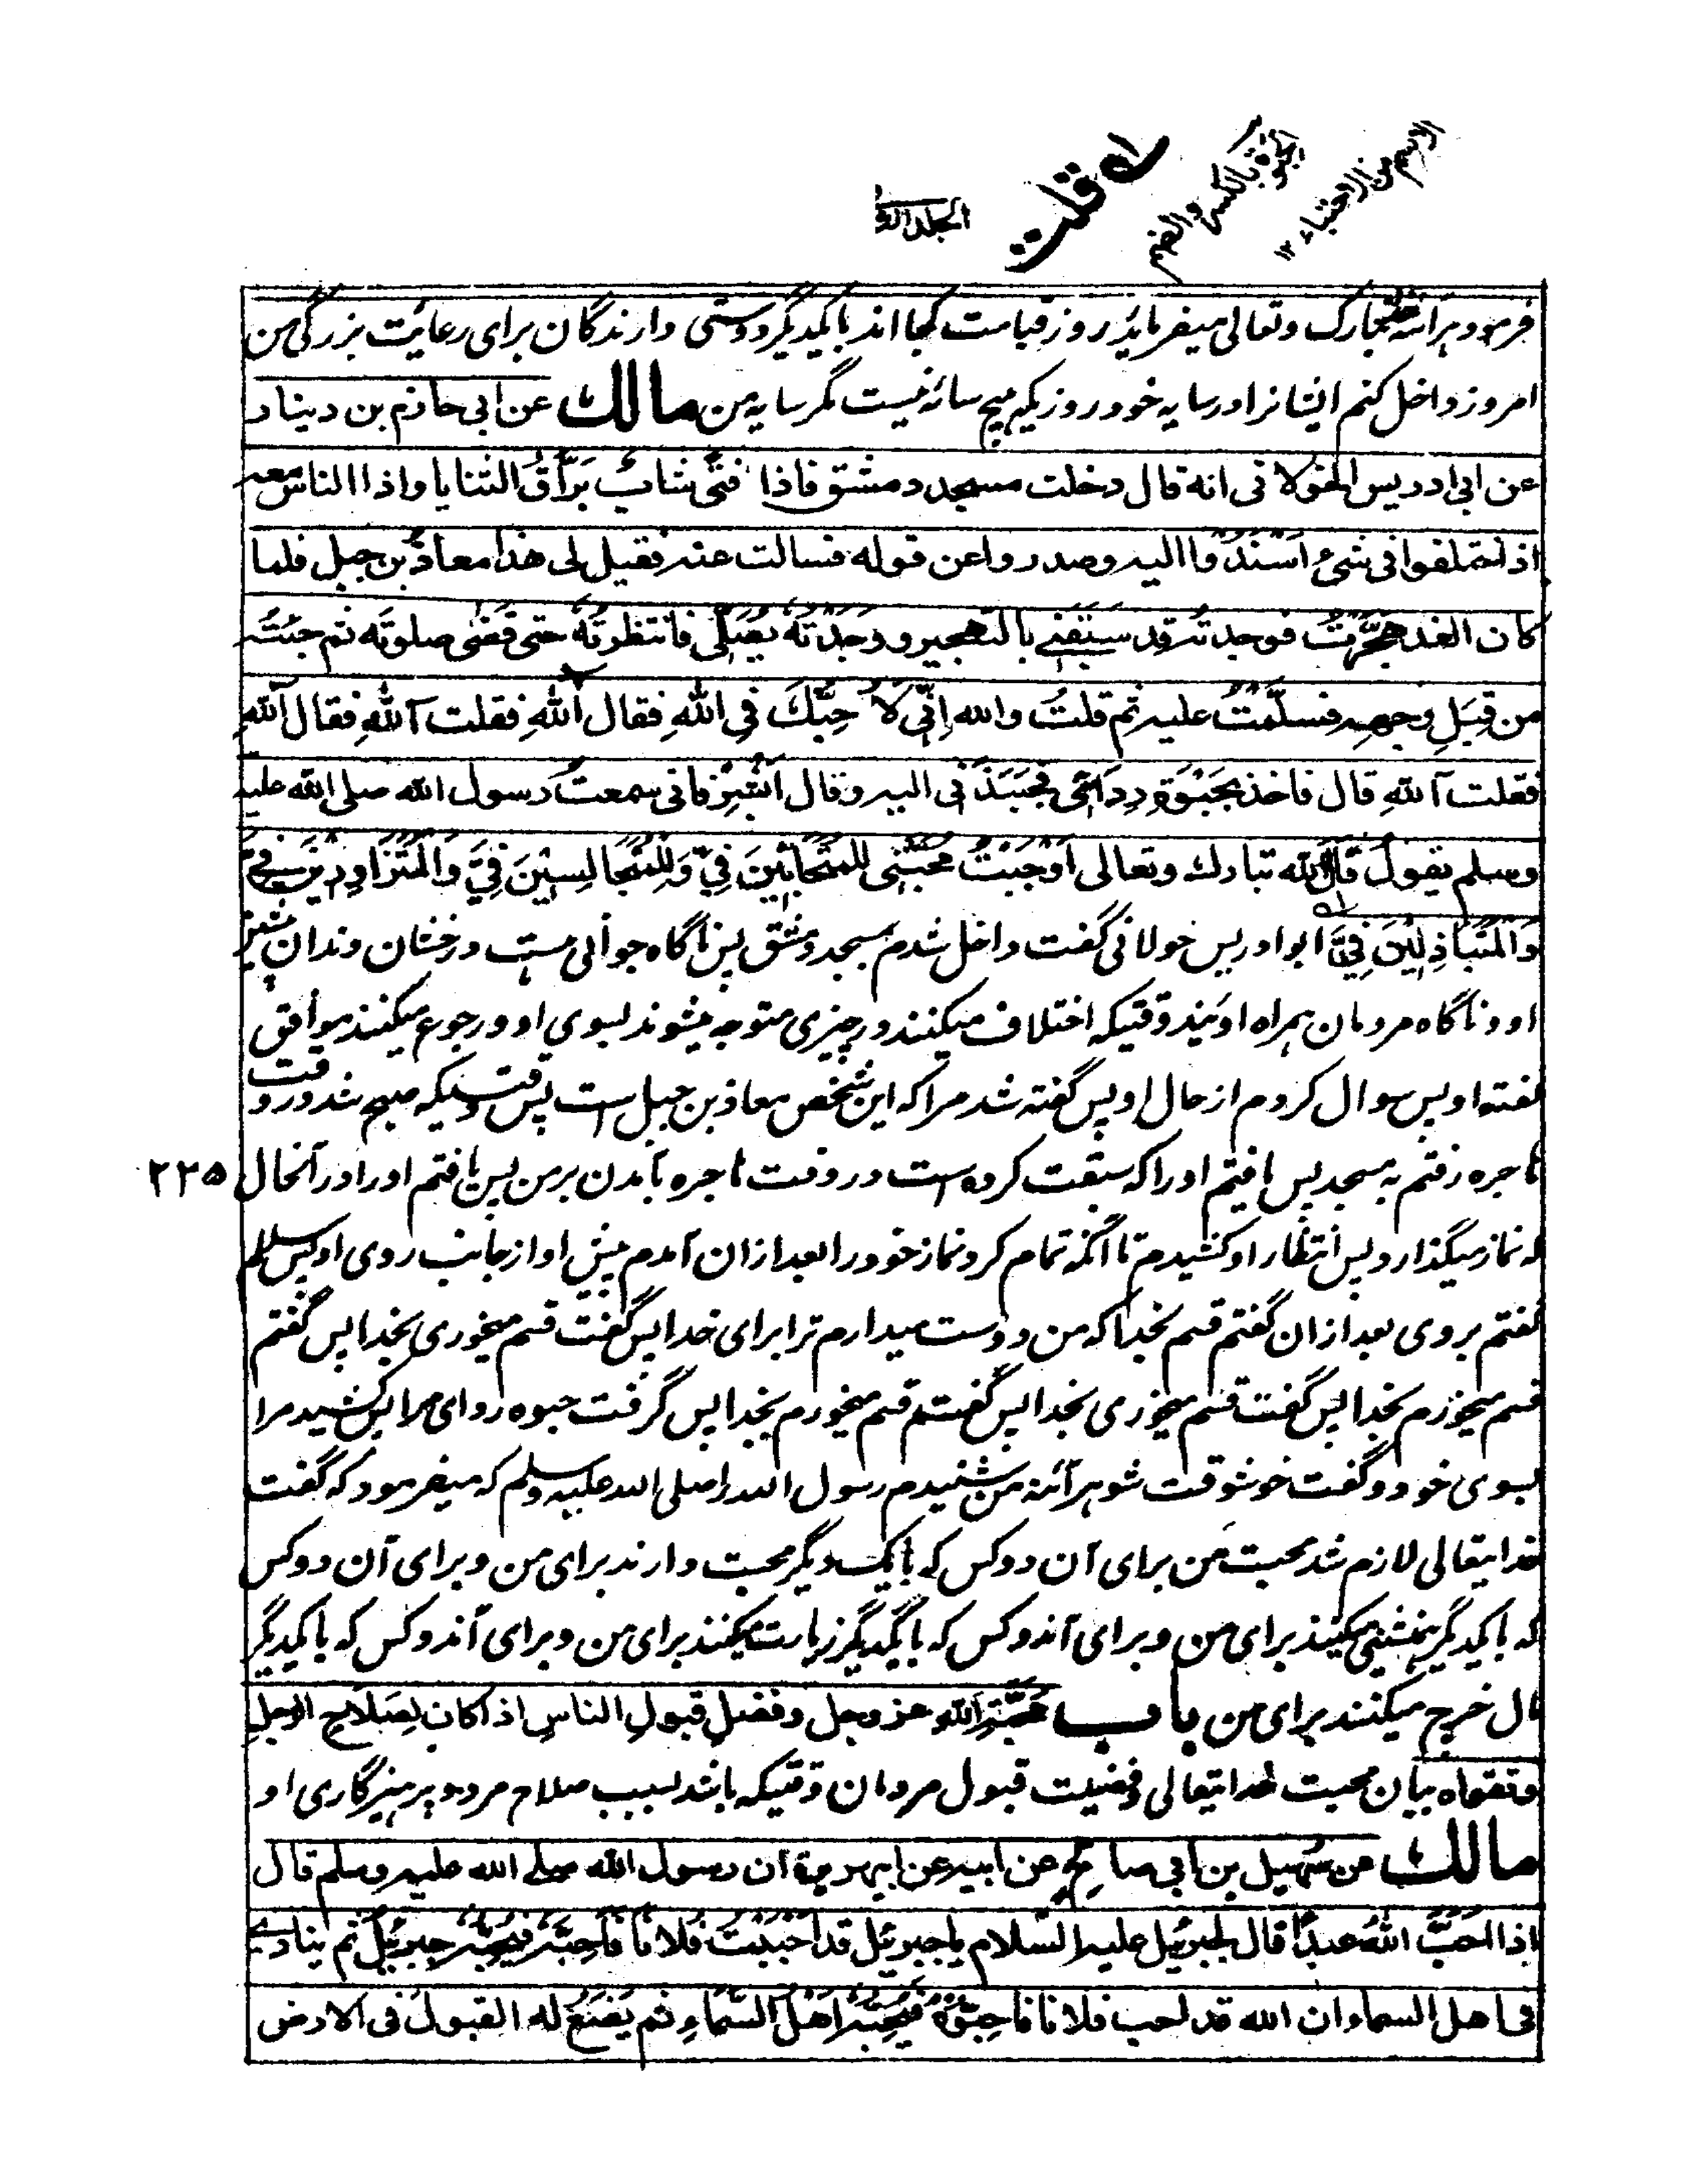 الجلد الاول
له قلت
الحبوة بالكسر والضم
الاسم من الاحتباء ١٢
فرمود هرآئنه خدا تبارک وتعالی میفرماید روز قیامت کجا اند بایکدیگر دوستی دارندگان برای رعایت بزرگی من
امروز داخل کنم ایشانرا در سایه خود روزیکه هیچ سایه نیست مگر سایه من مالك عن ابی حازم بن دینار
عن ابی ادریس الخولانی انه قال دخلت مسجد دمشق فاذا فتًی شابٌ بَرَّاقُ الثنایا واذا الناس معه
اذا اختلفوا فی شیءٍ اَسْنَدُوا الیه وصدروا عن قوله فسالت عنه فقیل لی هذا معاذُ بن جبل فلما
کان الغد هَجَّرْتُ فوجدته قد سبقنی بالتهجیر ووَجَدْتُهُ یُصَلِّی فانتظرتُهُ حتی قضٰی صلوتَه ثم جئتُه
من قِبَلِ وجهِه فسلّمتُ علیه ثم قلتُ والله اِنِّی لَاُحِبُّكَ فِی اللهِ فقال اٰللهِ فقلت آللهِ فقال آللهِ
فقلت آللهِ قال فاخذ بِحَبْوَةِ رِدَائِی فَجَبَذَنِی الیه وقال اَبْشِرْ فانی سمعتُ رسول الله صلی الله علیه
وسلم یقولُ قَالَ الله تبارك وتعالی اَوْجَبْتُ مَحَبَّتِی للمتَحَابِّیْنَ فِیَّ وَلِلْمُتَجَالِسِیْنَ فِیَّ وَالْمُتَزَاوِرِیْنَ فِیَّ
وَالْمُتَبَاذِلِیْنَ فِیَّ ابو ادریس خولانی گفت داخل شدم بمسجد دمشق پس ناگاه جوانی هست درخشان دندان پیش
او و ناگاه مردمان همراه اویند وقتیکه اختلاف میکنند در چیزی متوجه میشوند بسوی او و رجوع میکنند موافق
گفته او پس سوال کردم از حال او پس گفته شد مرا که این شخص معاذ بن جبل است پس وقتیکه صبح شد در وقت
هاجره رفتم به مسجد پس یافتم او را که سبقت کرده است در وقت هاجره بآمدن بر من پس یافتم او را در آنحال ۲۲۵
که نماز میگذارد پس انتظار او کشیدم تا آنکه تمام کرد نماز خود را بعد ازان آمدم پیش او از جانب روی او پس سلام
گفتم بر وی بعد ازان گفتم قسم بخدا که من دوست میدارم ترا برای خدا پس گفت قسم میخوری بخدا پس گفتم
قسم میخورم بخدا پس گفت قسم میخوری بخدا پس گفتم قسم میخورم بخدا پس گرفت حبوه ردای مرا پس کشید مرا
بسوی خود و گفت خوشوقت شو هرآئنه من شنیدم رسول الله را صلی الله علیه وسلم که میفرمود که گفت
خدایتعالی لازم شد محبت من برای آن دو کس که با یک دیگر محبت دارند برای من و برای آن دو کس
که با یکدیگر همنشینی میکنند برای من و برای آندو کس که با یکدیگر زیارت میکنند برای من و برای آندو کس که با یکدیگر
مال خرچ میکنند برای من باب محبّةِ اللهِ عز وجل وفضلِ قبولِ الناسِ اذا کان لِصَلَاحِ الرجلِ
وتقواه بیان محبت خدایتعالی و فضیلت قبول مردمان وقتیکه باشد بسبب صلاح مرد و پرهیزگاری او
مالك عن سُهَیل بن ابی صالحٍ عن ابیه عن ابی هریرة ان رسول الله صلی الله علیه وسلم قال
اذا احَبَّ اللهُ عبدًا قال لجبرئیل علیه السّلام یا جبرئیل قد اَحْبَبْتُ فُلَانًا فَاَحِبَّه فَیُحِبُّه جبرئیلُ ثم ینادی
فی اهل السماء ان الله قد احب فلانا فاَحِبُّوْهُ فَیُحِبُّه اَهْلُ السَّمَاءِ ثم یَضَعُ له القبولَ فی الارض